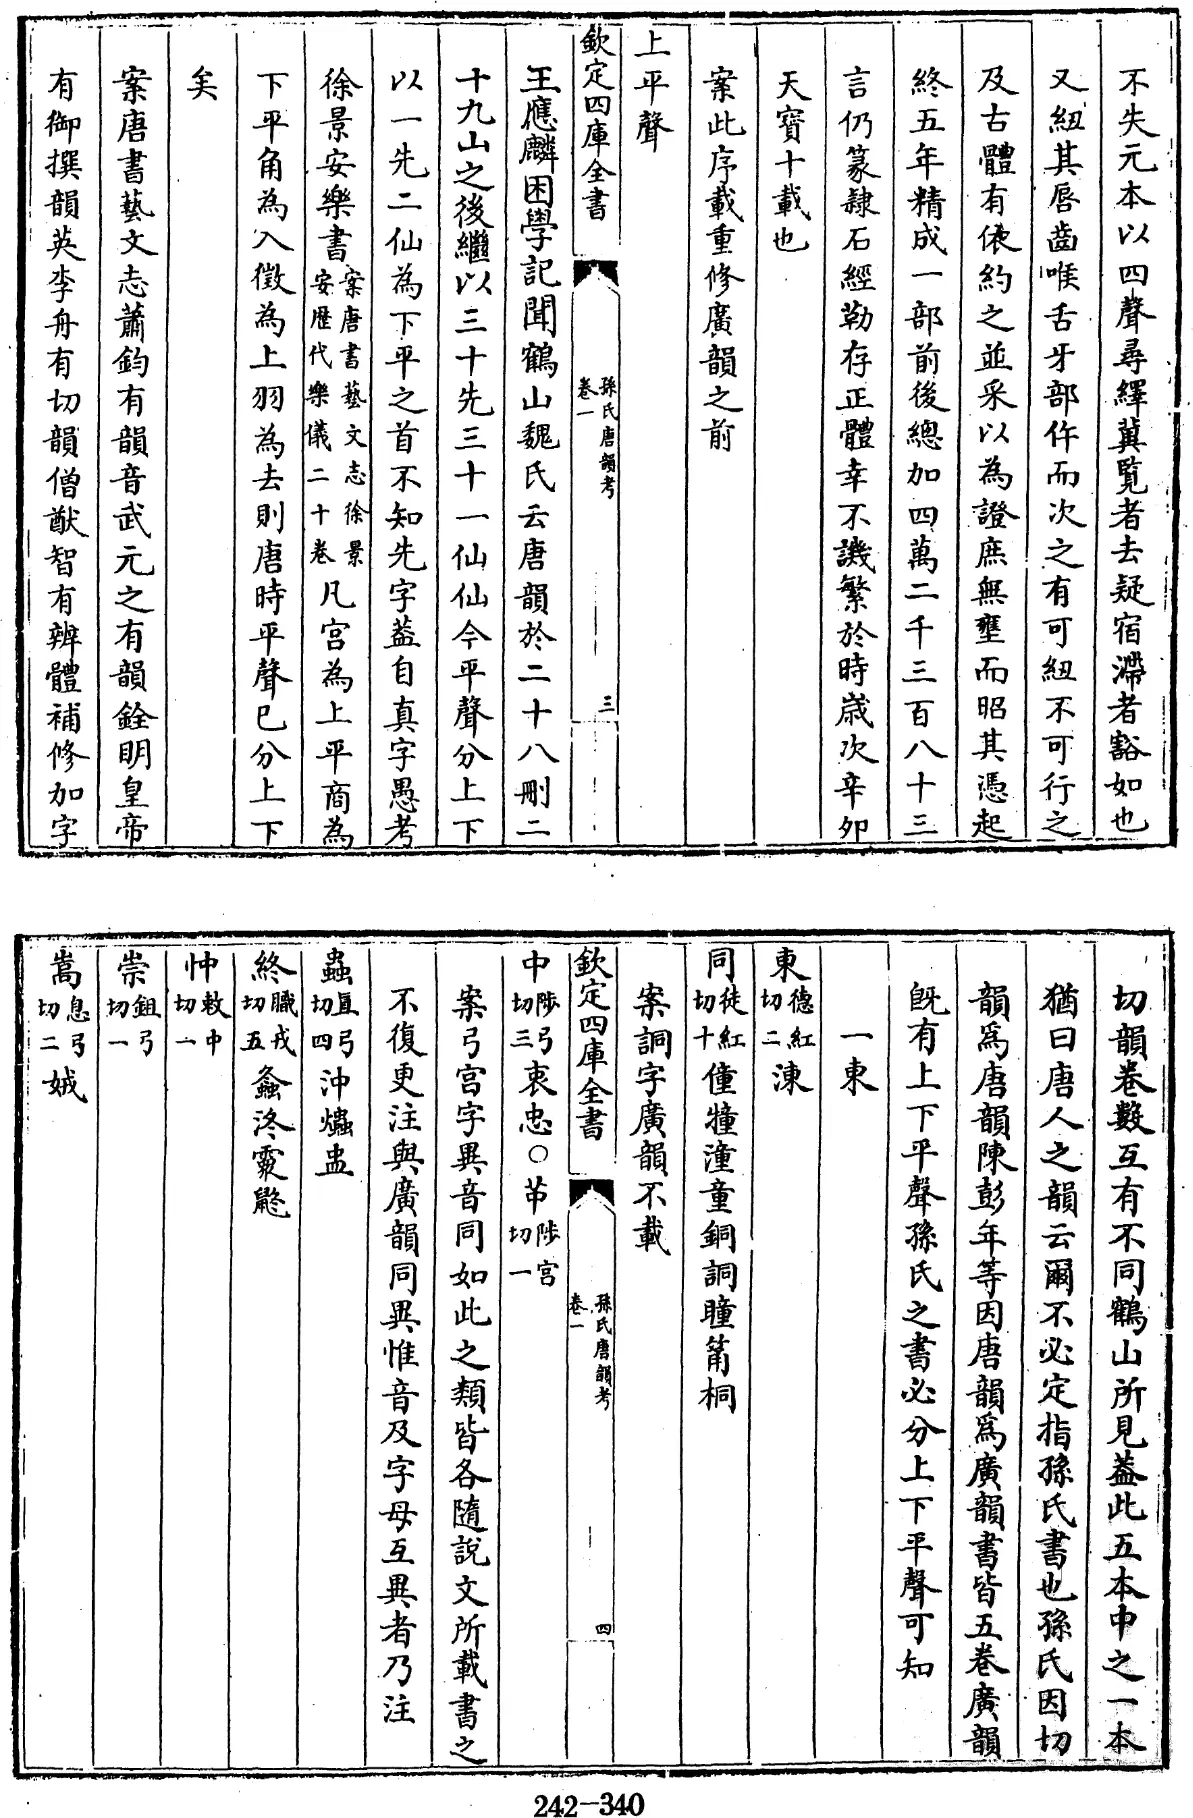 不失元本以四聲尋繹冀覧者去疑宿滯者豁如也
又紐其唇齒喉舌牙部仵而次之有可紐不可行之
及古體有依約之並采以為證庶無壅而昭其憑起
終五年精成一部前後總加四萬二千三百八十三
言仍篆隸石經勒存正體幸不譏繁於時歲次辛卯
天寶十載也
案此序載重修廣韻之前
上平聲
欽定四庫全書
孫氏唐韻考
卷一
三
王應麟困學記聞鶴山魏氏云唐韻於二十八刪二
十九山之後繼以三十先三十一仙仙今平聲分上下
以一先二仙為下平之首不知先字葢自真字愚考
徐景安樂書案唐書藝文志徐景安歴代樂儀二十卷凡宫為上平商為
下平角為入徵為上羽為去則唐時平聲已分上下
矣
案唐書藝文志蕭鈞有韻音武元之有韻銓明皇帝
有御撰韻英李舟有切韻僧猷智有辨體補修加字
切韻卷數互有不同鶴山所見葢此五本中之一本
猶曰唐人之韻云爾不必定指孫氏書也孫氏因切
韻爲唐韻陳彭年等因唐韻爲廣韻書皆五卷廣韻
既有上下平聲孫氏之書必分上下平聲可知
一東
東德紅切二涷
同徒紅切十僮犝潼童銅詷瞳筩桐
案詷字廣韻不載
欽定四庫全書
孫氏唐韻考
卷一
四
中陟弓切三衷忠○苖陟宫切一
案弓宫字異音同如此之類皆各隨說文所載書之
不復更注與廣韻同異惟音及字母互異者乃注
蟲直弓切四沖爞盅
終職戎切五螽泈霥鼨
忡敕中切一
崇鉏弓切一
嵩息弓切二娀
242-340